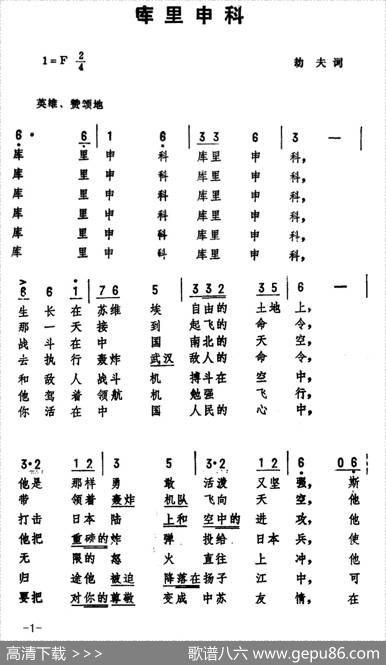 库里申科
1=F 2/4
劫夫词
英雄、赞颂地
6· 6 | 1 6 | 3 3 6 | 3 — |
库 里 申 科 库里 申 科,
库 里 申 科 库里 申 科,
库 里 申 科 库里 申 科,
库 里 申 科 库里 申 科,
库 里 申 科 库里 申 科,
库 里 申 科 库里 申 科,
6 6 1 | 7 6 5 | 3 3 2 3 5 | 6 — |
生 长 在 苏维 埃 自由的 土地 上,
那 一 天 接 到 起飞的 命 令,
战 斗 在 中 国 南北的 天 空,
去 执 行 轰炸 武汉 敌人的 命 令,
和 敌 人 战斗 机 搏斗在 空 中,
他 驾 着 领航 机 勉强 飞 行,
你 活 在 中 国 人民的 心 中,
3·2 1 2 | 3 5 | 3·2 1 2 | 6 0 6 |
他是 那样 勇 敢 活泼 又坚 强, 斯
带 领着 轰炸 机队 飞向 天 空, 他
打击 日本 陆 上和 空中的 进 攻, 他
他把 重磅的 炸 弹 投给 日本 兵, 使
无 限的 怒 火 直往 上 冲, 他
归 途他 被迫 降落在 扬子 江 中, 可
要把 对你的 尊敬 变成 中苏 友 情, 在
-1-
高清下载 >>>
歌谱八六 www.gepu86.com